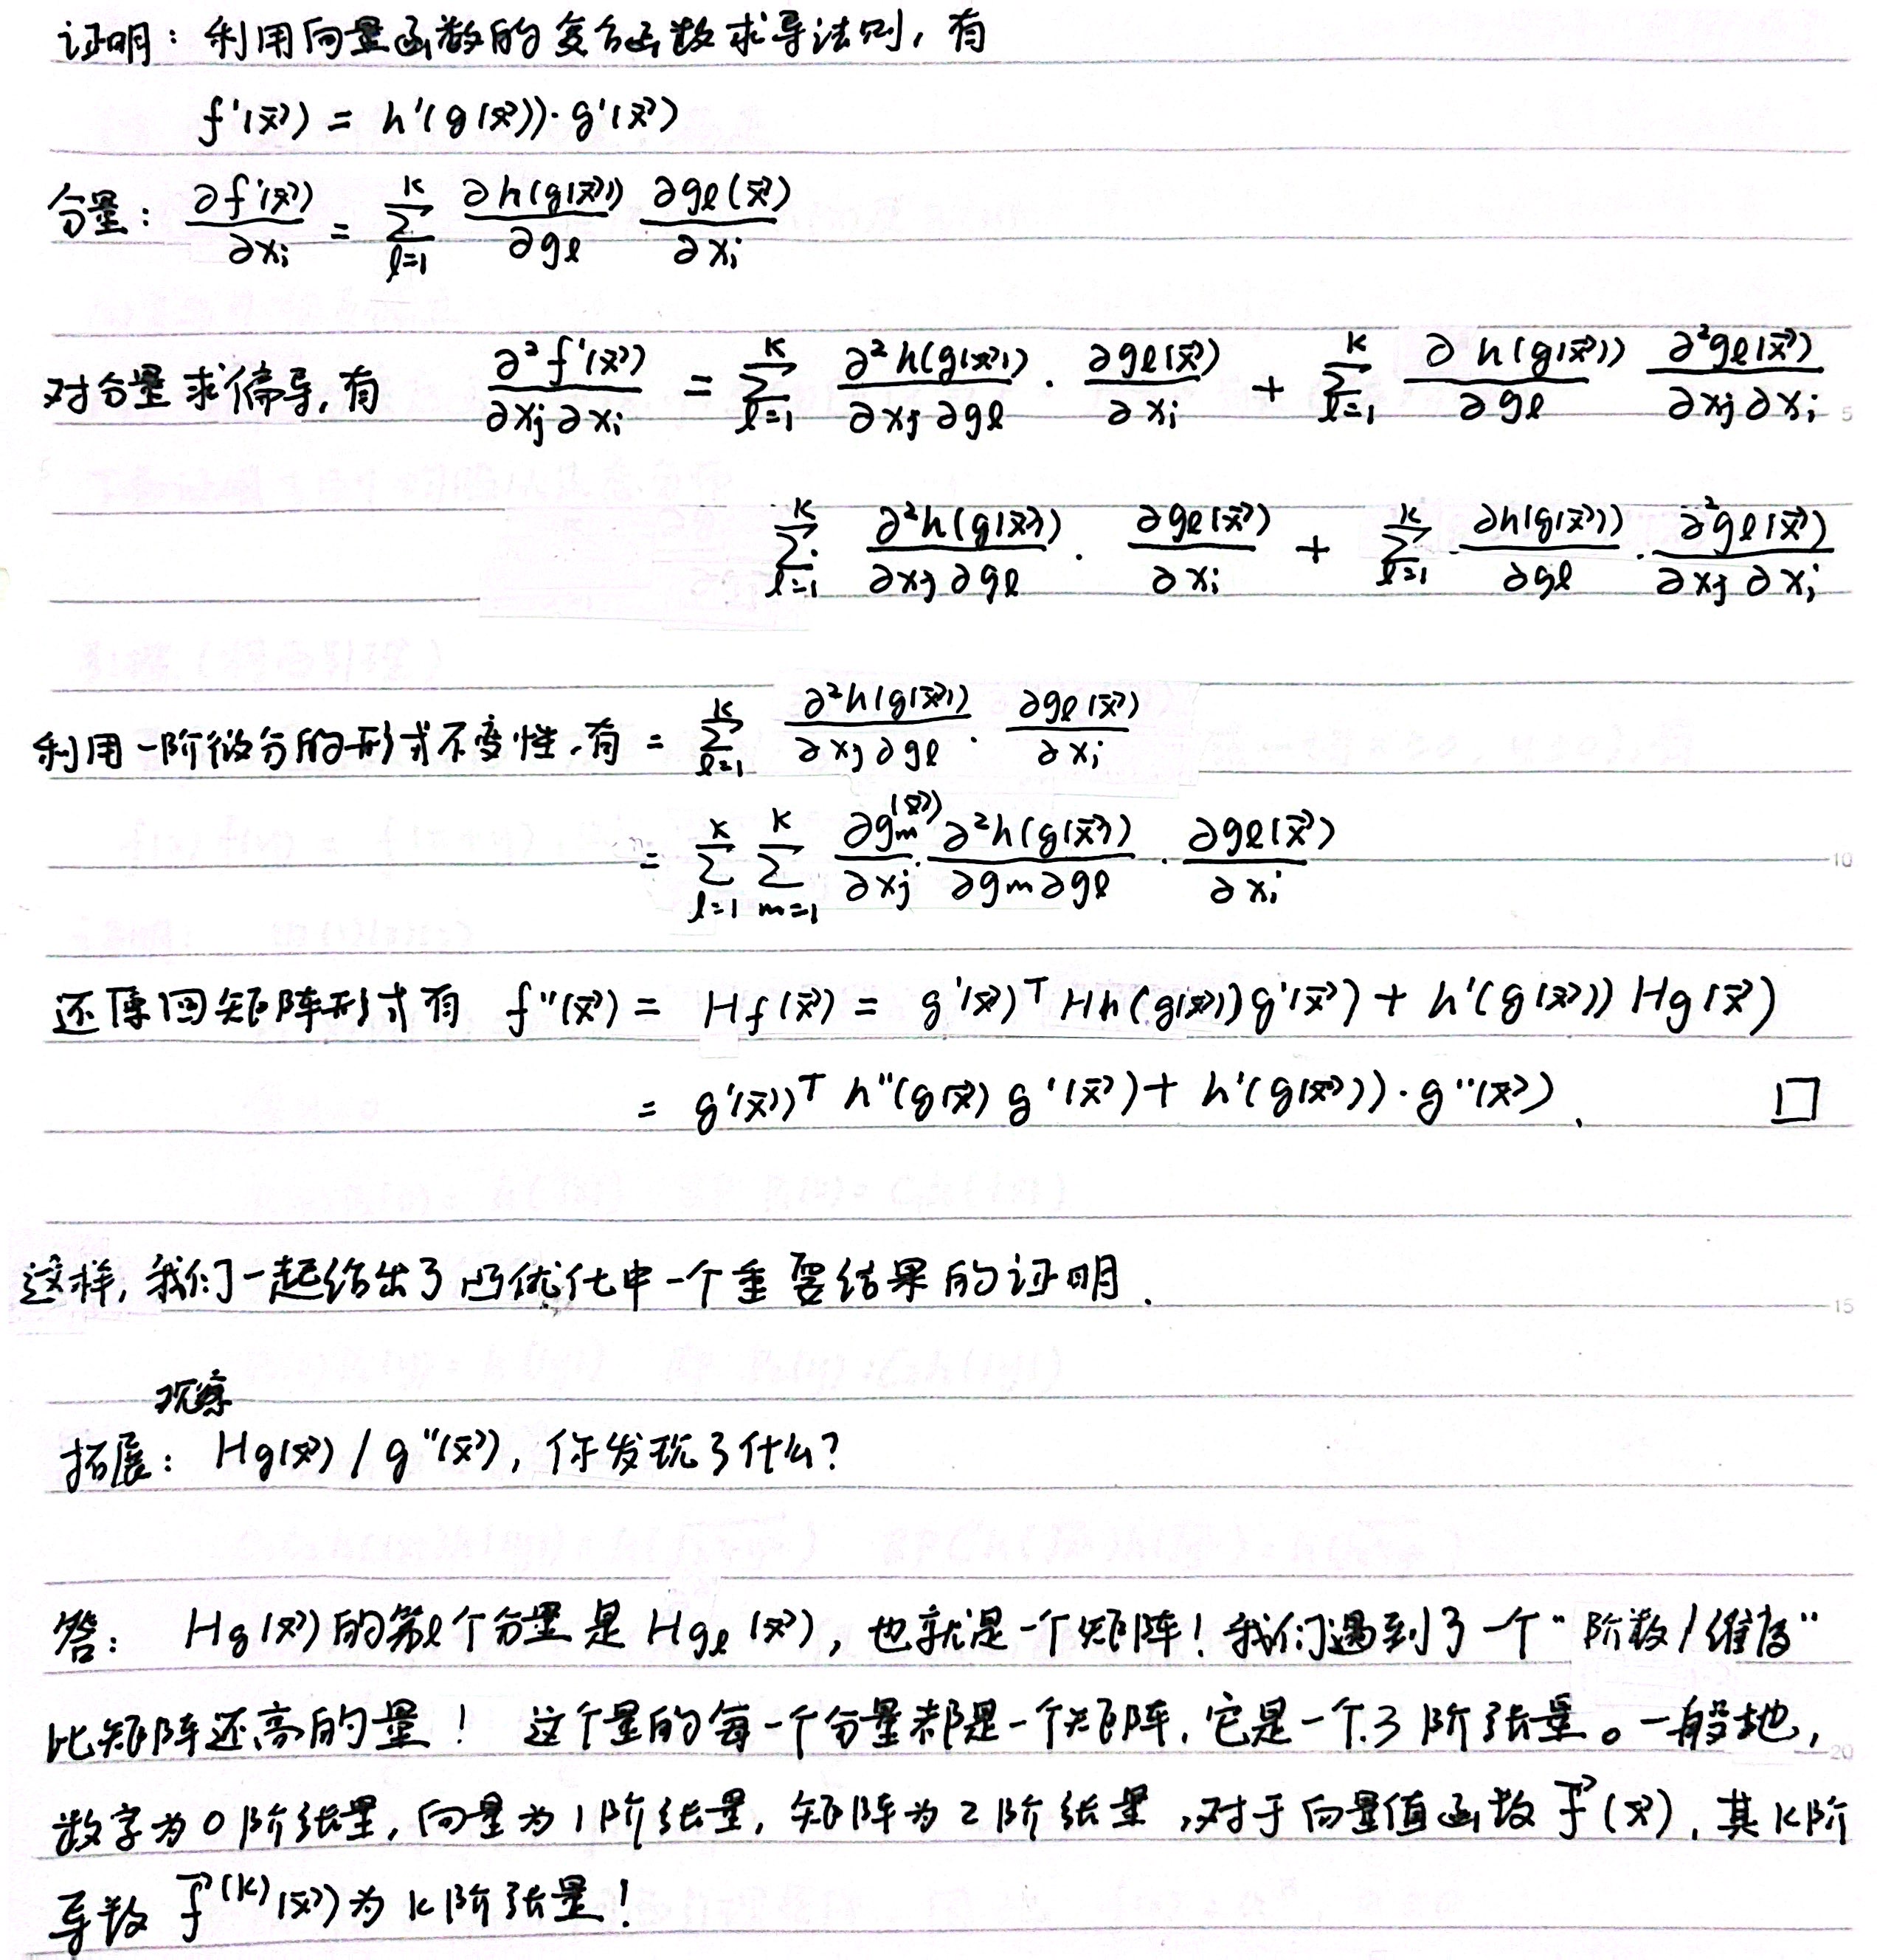 证明：利用向量函数的复合函数求导法则，有
f'(x⃗) = h'(g(x⃗))·g'(x⃗)
分量：∂f'(x⃗)/∂xᵢ = Σ_{l=1}^{K} ∂h(g(x⃗))/∂g_l ∂g_l(x⃗)/∂xᵢ
对分量求偏导，有 ∂²f'(x⃗)/∂xⱼ∂xᵢ = Σ_{l=1}^{K} ∂²h(g(x⃗))/∂xⱼ∂g_l · ∂g_l(x⃗)/∂xᵢ + Σ_{l=1}^{K} ∂h(g(x⃗))/∂g_l ∂²g_l(x⃗)/∂xⱼ∂xᵢ
Σ_{l=1}^{K} ∂²h(g(x⃗))/∂xⱼ∂g_l · ∂g_l(x⃗)/∂xᵢ + Σ_{l=1}^{K} ∂h(g(x⃗))/∂g_l · ∂²g_l(x⃗)/∂xⱼ∂xᵢ
利用一阶微分的形式不变性，有 = Σ_{l=1}^{K} ∂²h(g(x⃗))/∂xⱼ∂g_l · ∂g_l(x⃗)/∂xᵢ
= Σ_{l=1}^{K} Σ_{m=1}^{K} ∂g_m(x⃗)/∂xⱼ · ∂²h(g(x⃗))/∂g_m∂g_l · ∂g_l(x⃗)/∂xᵢ
还原回矩阵形式有 f''(x⃗) = Hf(x⃗) = g'(x⃗)ᵀ Hh(g(x⃗))g'(x⃗) + h'(g(x⃗)) Hg(x⃗)
= g'(x⃗)ᵀ h''(g(x⃗) g'(x⃗) + h'(g(x⃗))·g''(x⃗). □
这样，我们一起给出了凸优化中一个重要结果的证明.
观察
拓展：Hg(x⃗) / g''(x⃗)，你发现了什么?
答： Hg(x⃗)的第l个分量是Hg_l(x⃗)，也就是一个矩阵！我们遇到了一个“阶数/维度”
比矩阵还高的量！ 这个量的每一个分量都是一个矩阵，它是一个3阶张量。一般地，
数字为0阶张量，向量为1阶张量，矩阵为2阶张量，对于向量值函数f⃗(x⃗)，其k阶
导数 f⃗^(k)(x⃗)为k阶张量！